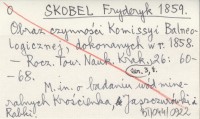 SKOBEL Fryderyk 1859.
Obraz czynności Komissyi Balneo-
logicznej, dokonanych w r. 1858.
— Rocz. Tow. Nauk. Krak., 26: 60-
-68. Ser. 3, 3.
M. in. o badaniu wód mine-
ralnych Krościenka, Jaszczurówki i
Rabki.